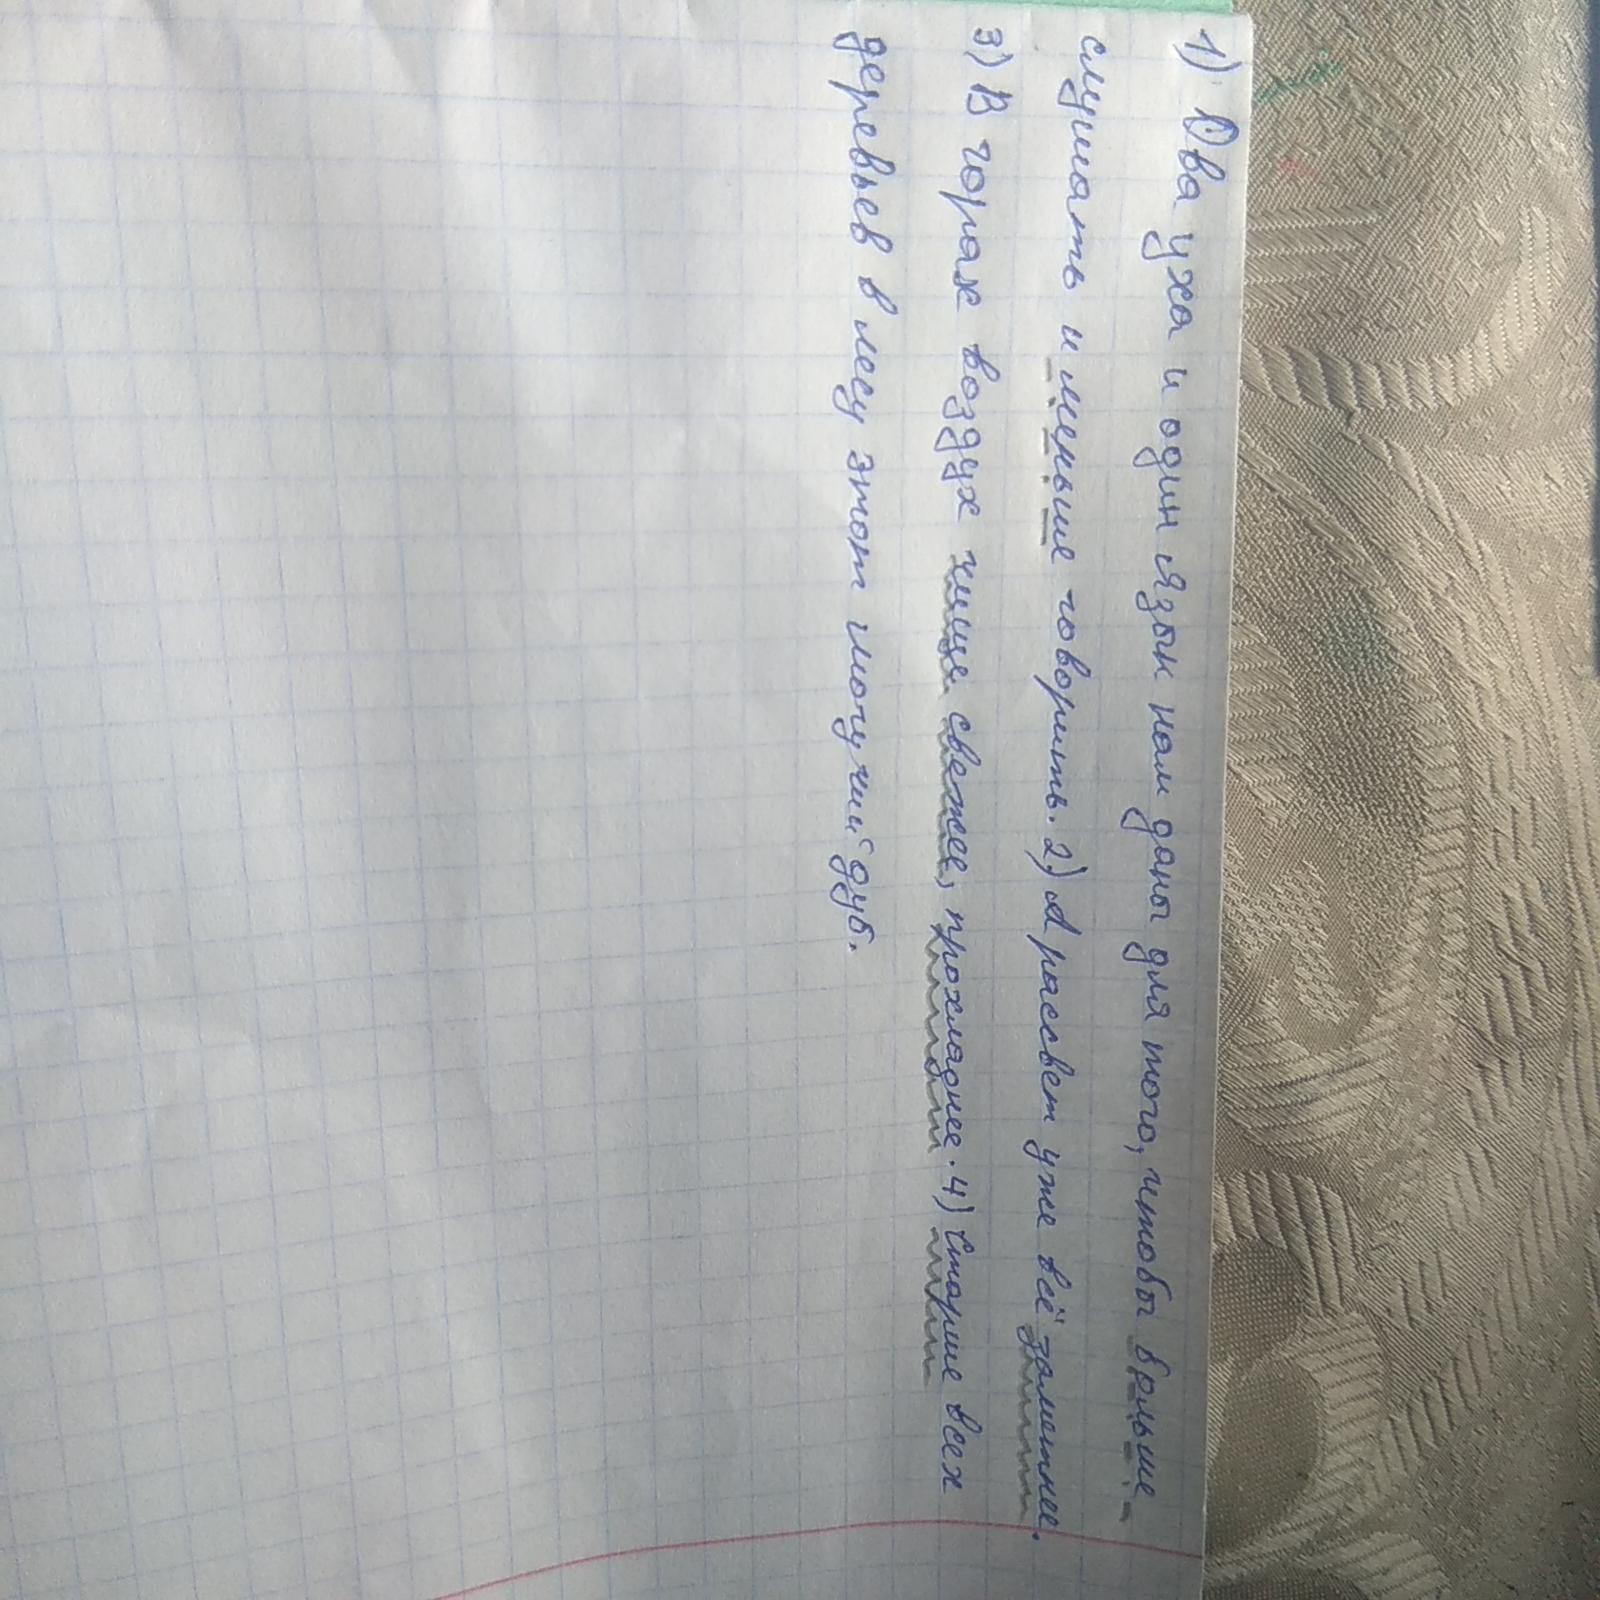 1) Два уха и один язык нам даны для того, чтобы больше
слушать и меньше говорить. 2) А рассвет уже всё заметнее.
3) В горах воздух чище свежее, прохладнее. 4) Старше всех
деревьев в лесу этот могучий дуб.